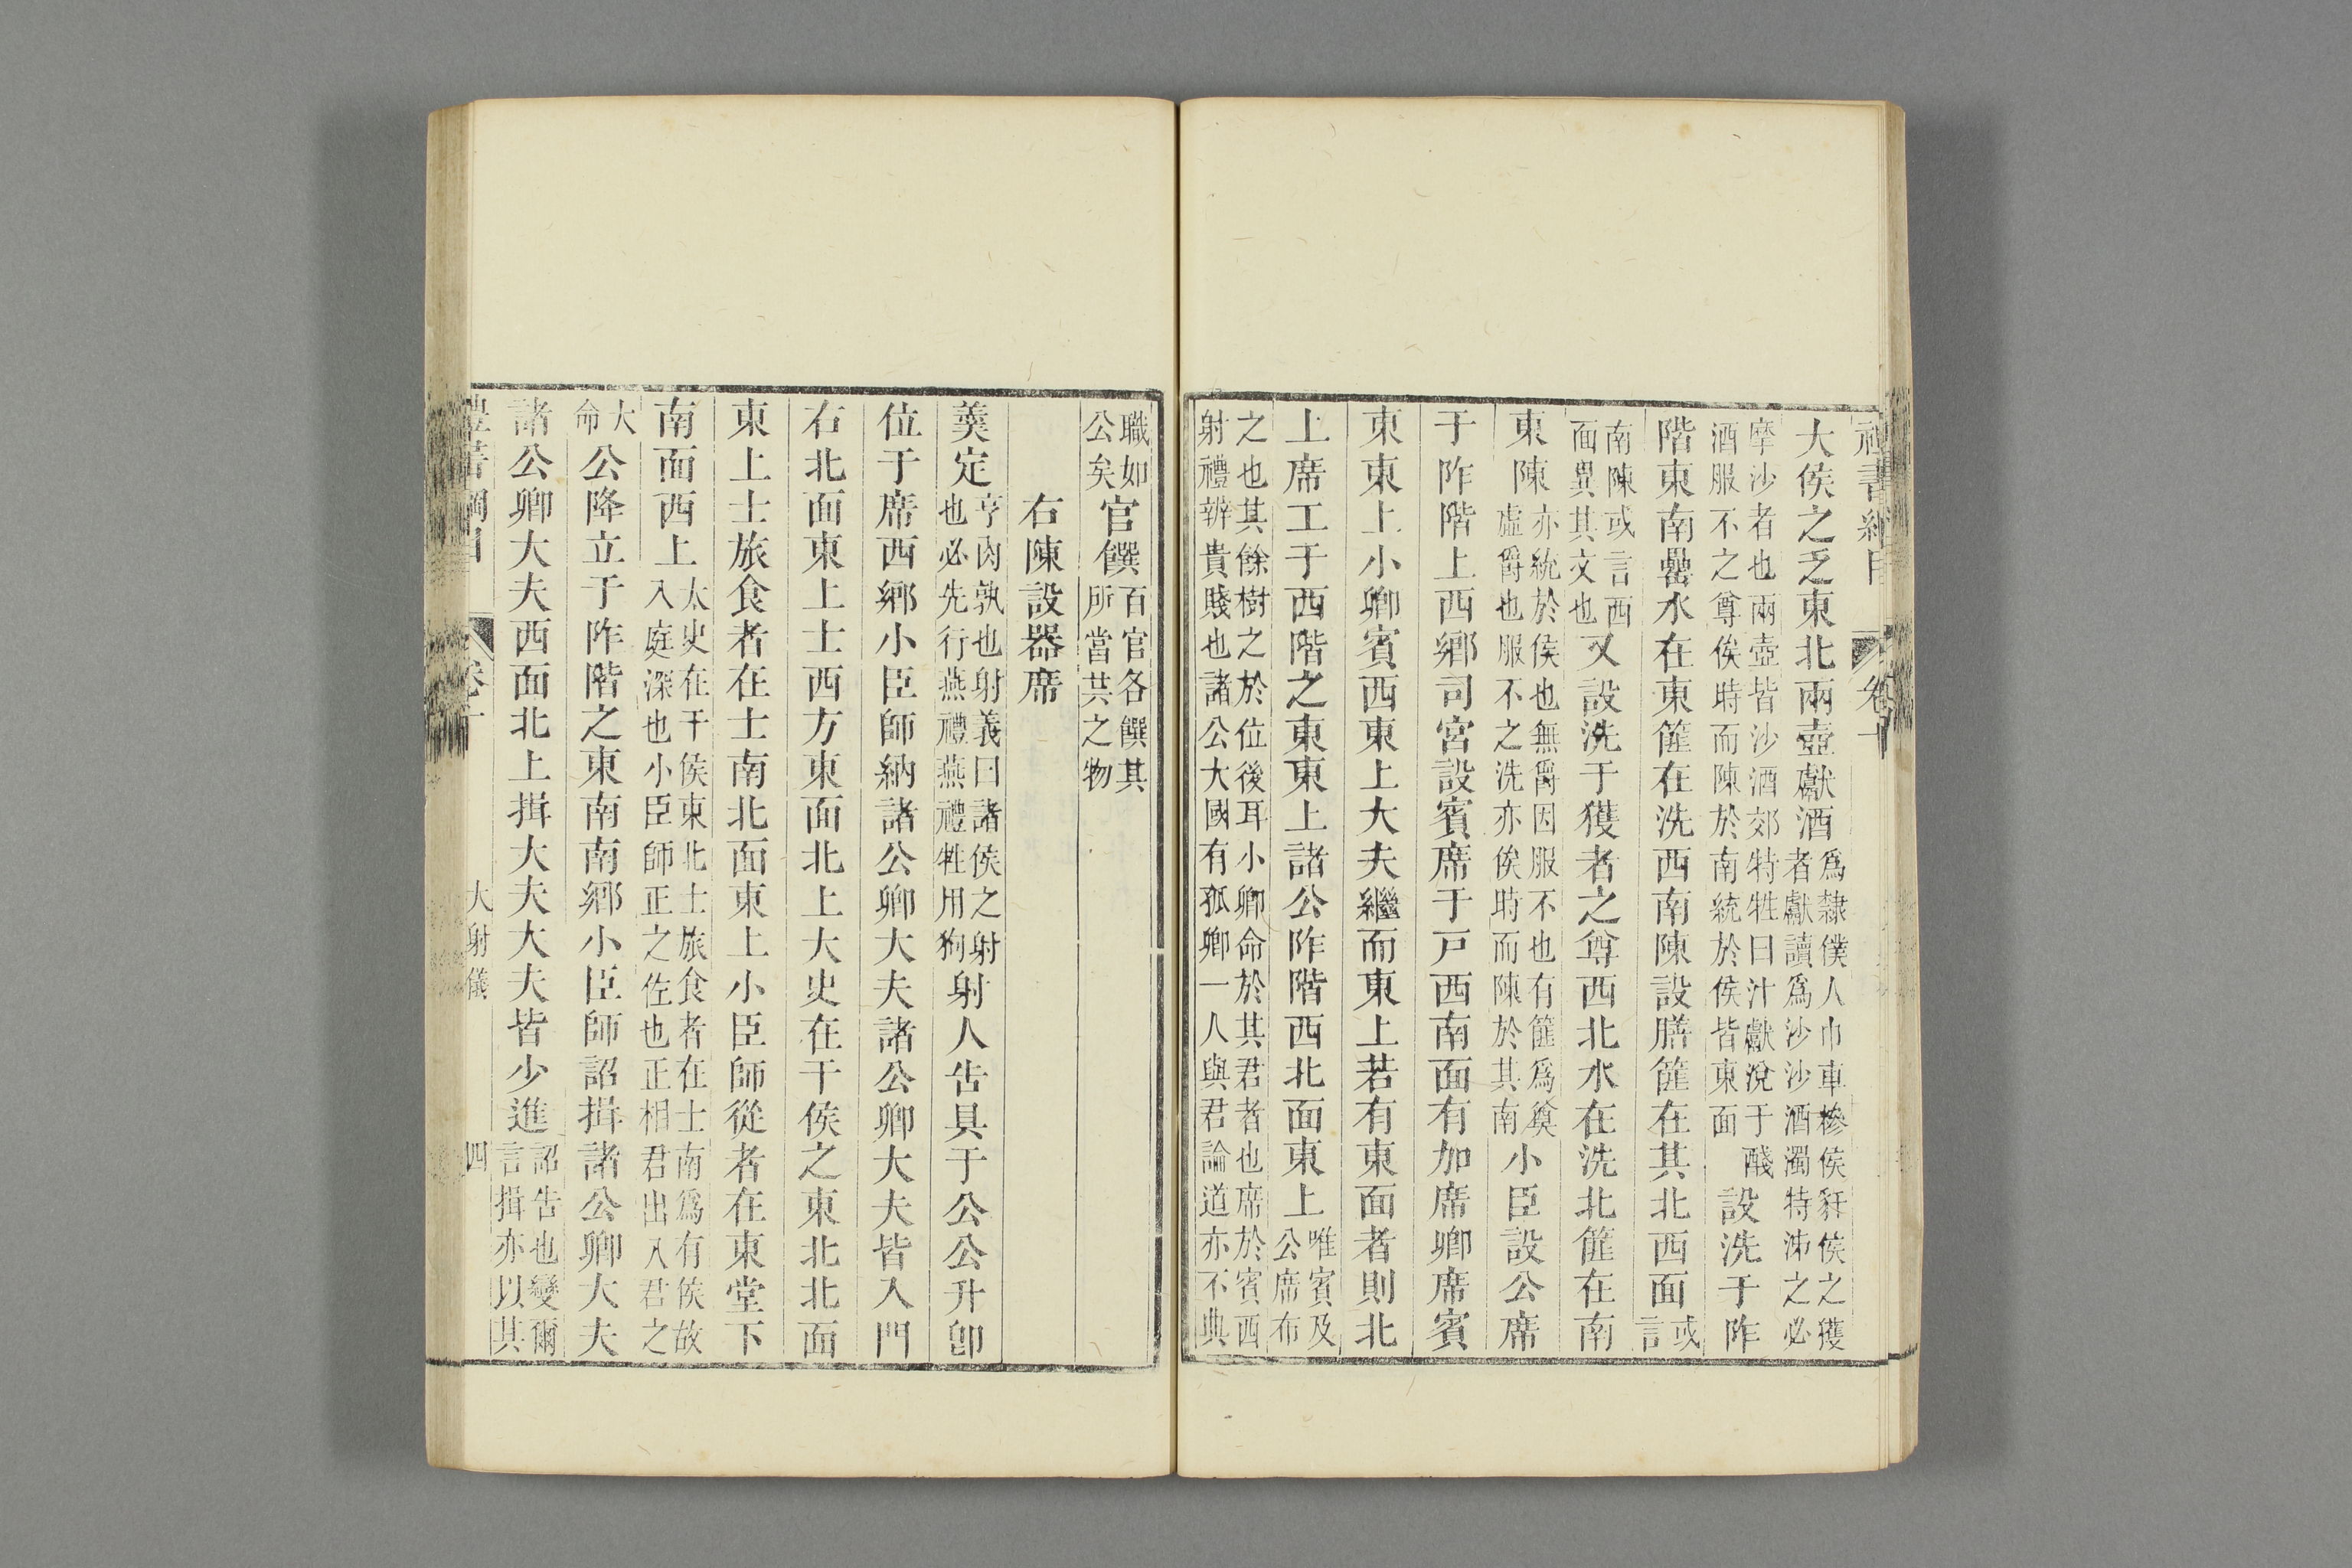 禮書綱目　卷十
大侯之乏東北兩壺獻酒爲隸僕人巾車糝侯豻侯之獲者獻讀爲沙沙酒濁特泲之必
摩沙者也兩壺皆沙酒郊特牲曰汁獻涗于醆酒服不之尊俟時而陳於南統於侯皆東面設洗于阼
階東南罍水在東篚在洗西南陳設膳篚在其北西面或言
南陳或言西面異其文也又設洗于獲者之尊西北水在洗北篚在南
東陳亦統於侯也無爵因服不也有篚爲奠虛爵也服不之洗亦俟時而陳於其南小臣設公席
于阼階上西鄉司宮設賓席于戸西南面有加席卿席賓
東東上小卿賓西東上大夫繼而東上若有東面者則北
上席工于西階之東東上諸公阼階西北面東上唯賓及公席布
之也其餘樹之於位後耳小卿命於其君者也席於賓西射禮辨貴賤也諸公大國有孤卿一人與君論道亦不典
職如公矣官饌百官各饌其所當共之物
右陳設器席
羹定亨肉孰也射義曰諸侯之射也必先行燕禮燕禮牲用狗射人告具于公公升卽
位于席西鄉小臣師納諸公卿大夫諸公卿大夫皆入門
右北面東上士西方東面北上大史在干侯之東北北面
東上士旅食者在士南北面東上小臣師從者在東堂下
南面西上太史在干侯東北士旅食者在士南爲有侯故入庭深也小臣師正之佐也正相君出入君之
大命公降立于阼階之東南南鄉小臣師詔揖諸公卿大夫
諸公卿大夫西面北上揖大夫大夫皆少進詔告也變爾言揖亦以其
禮書綱目　卷十　大射儀　四